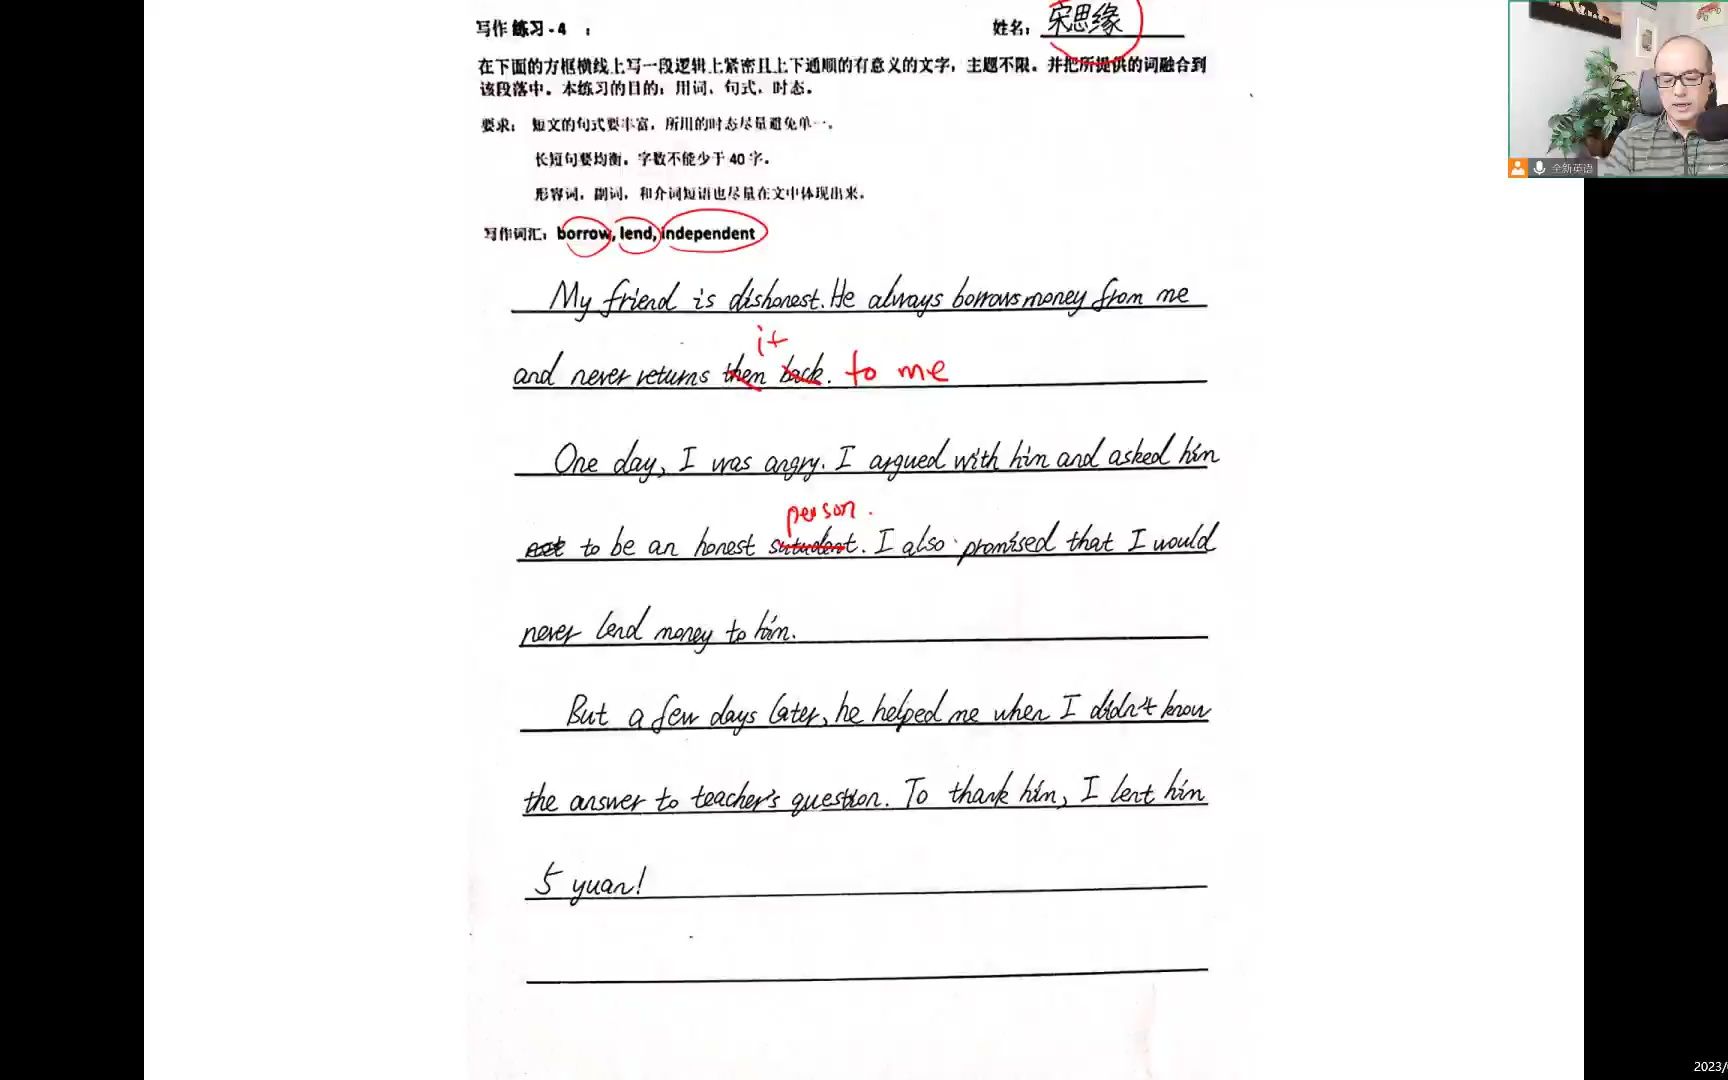 写作练习-4 :
姓名: 宋思缘
在下面的方框横线上写一段逻辑上紧密且上下通顺的有意义的文字，主题不限。并把所提供的词融合到
该段落中。本练习的目的：用词、句式、时态。
要求： 短文的句式要丰富，所用的时态尽量避免单一。
长短句要均衡，字数不能少于 40 字。
形容词，副词，和介词短语也尽量在文中体现出来。
写作词汇：borrow, lend, independent
My friend is dishonest. He always borrows money from me
it
and never returns them back. to me
One day, I was angry. I argued with him and asked him
person.
to be an honest sutudent. I also promised that I would
never lend money to him.
But a few days later, he helped me when I didn't know
the answer to teacher's question. To thank him, I lent him
5 yuan!
全新英语
2023/